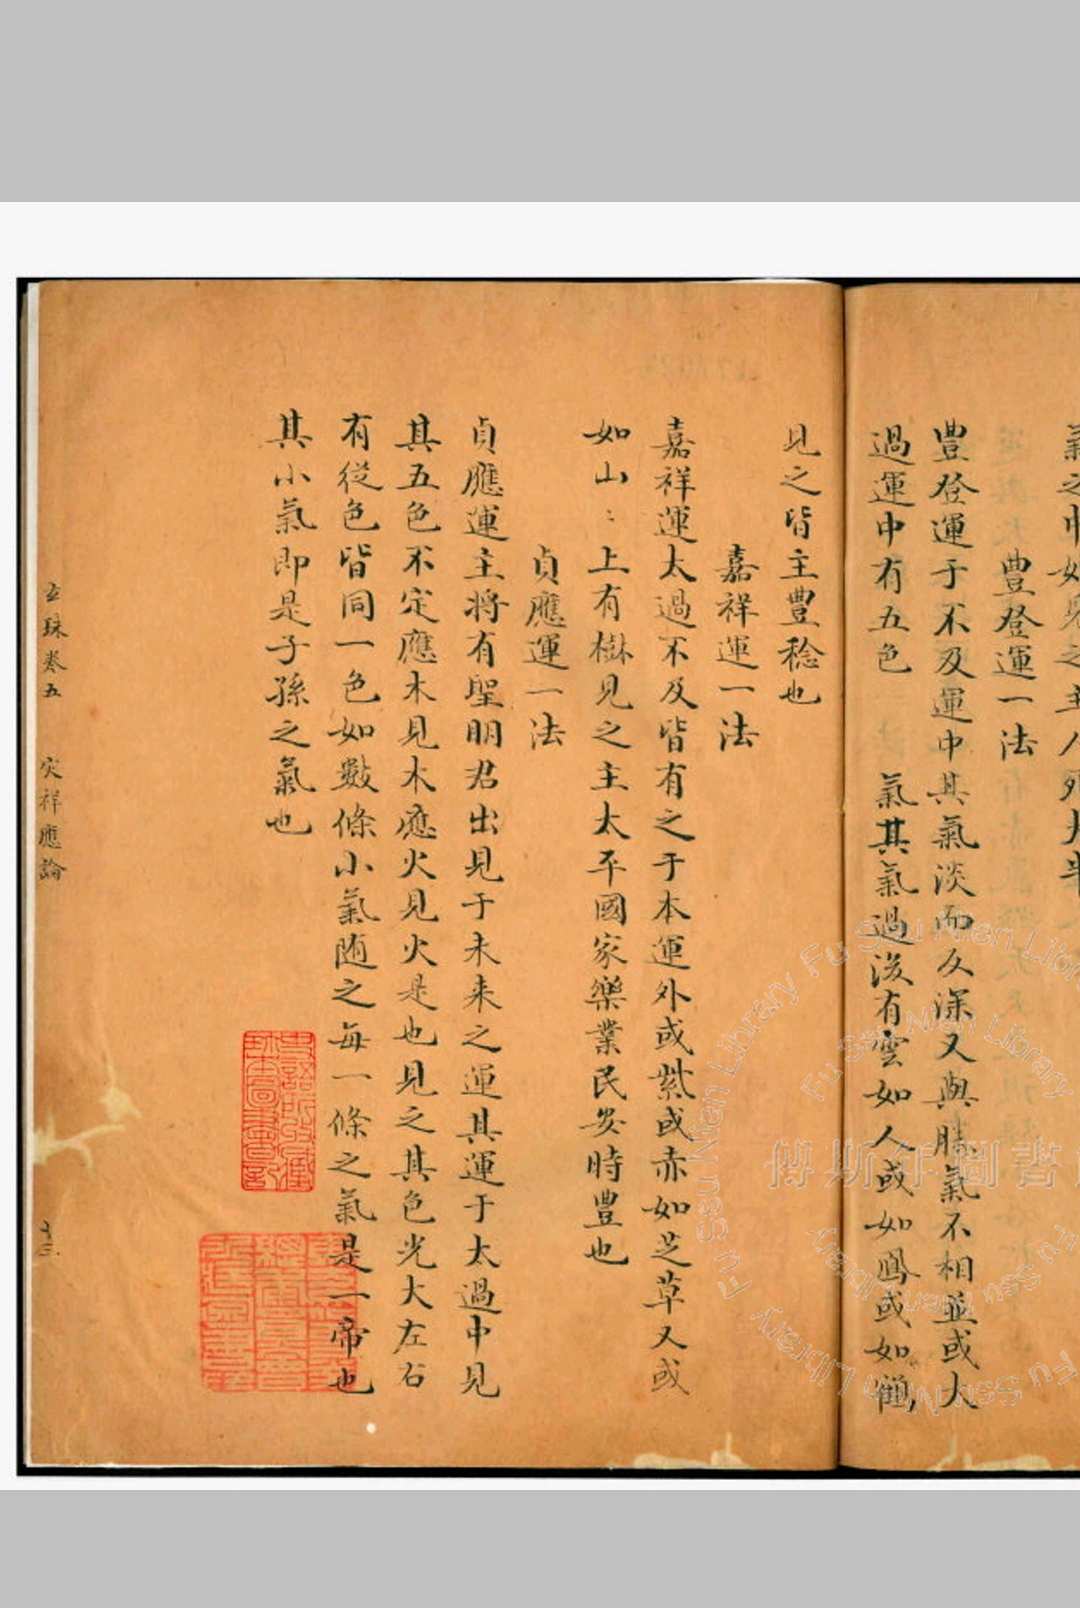 豊登運一法
豊登運于不及運中其氣淡而又深又與勝氣不相並或大
過運中有五色　氣其氣過後有雲如人或如鳳或如鶴
見之皆主豊稔也
嘉祥運一法
嘉祥運太過不及皆有之于本運外或紫或赤如芝草又或
如山〻上有樹見之主太平國家樂業民安時豊也
貞應運一法
貞應運主將有聖明君出見于未来之運其運于太過中見
其五色不定應木見木應火見火是也見之其色光大左右
有從色皆同一色如數條小氣随之每一條之氣是一帝也
其小氣即是子孫之氣也
玄珠卷五　灾祥應論
十三
史語所收藏珍本圖書記
傅斯年圖書
Fu Ssu Nien Library